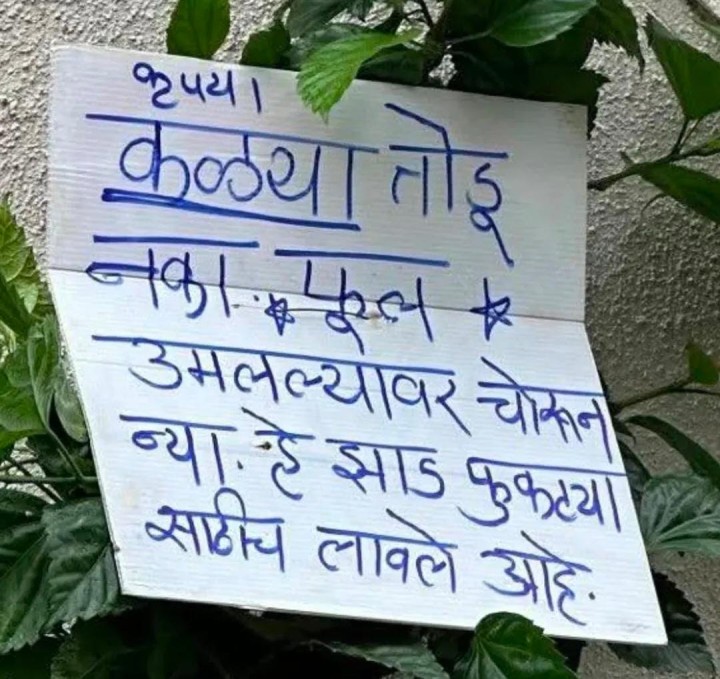 कृपया
कळ्या तोडू
नका. * फूल *
उमलल्यावर चोरून
न्या. हे झाड फुकट्या
साठीच लावले आहे.